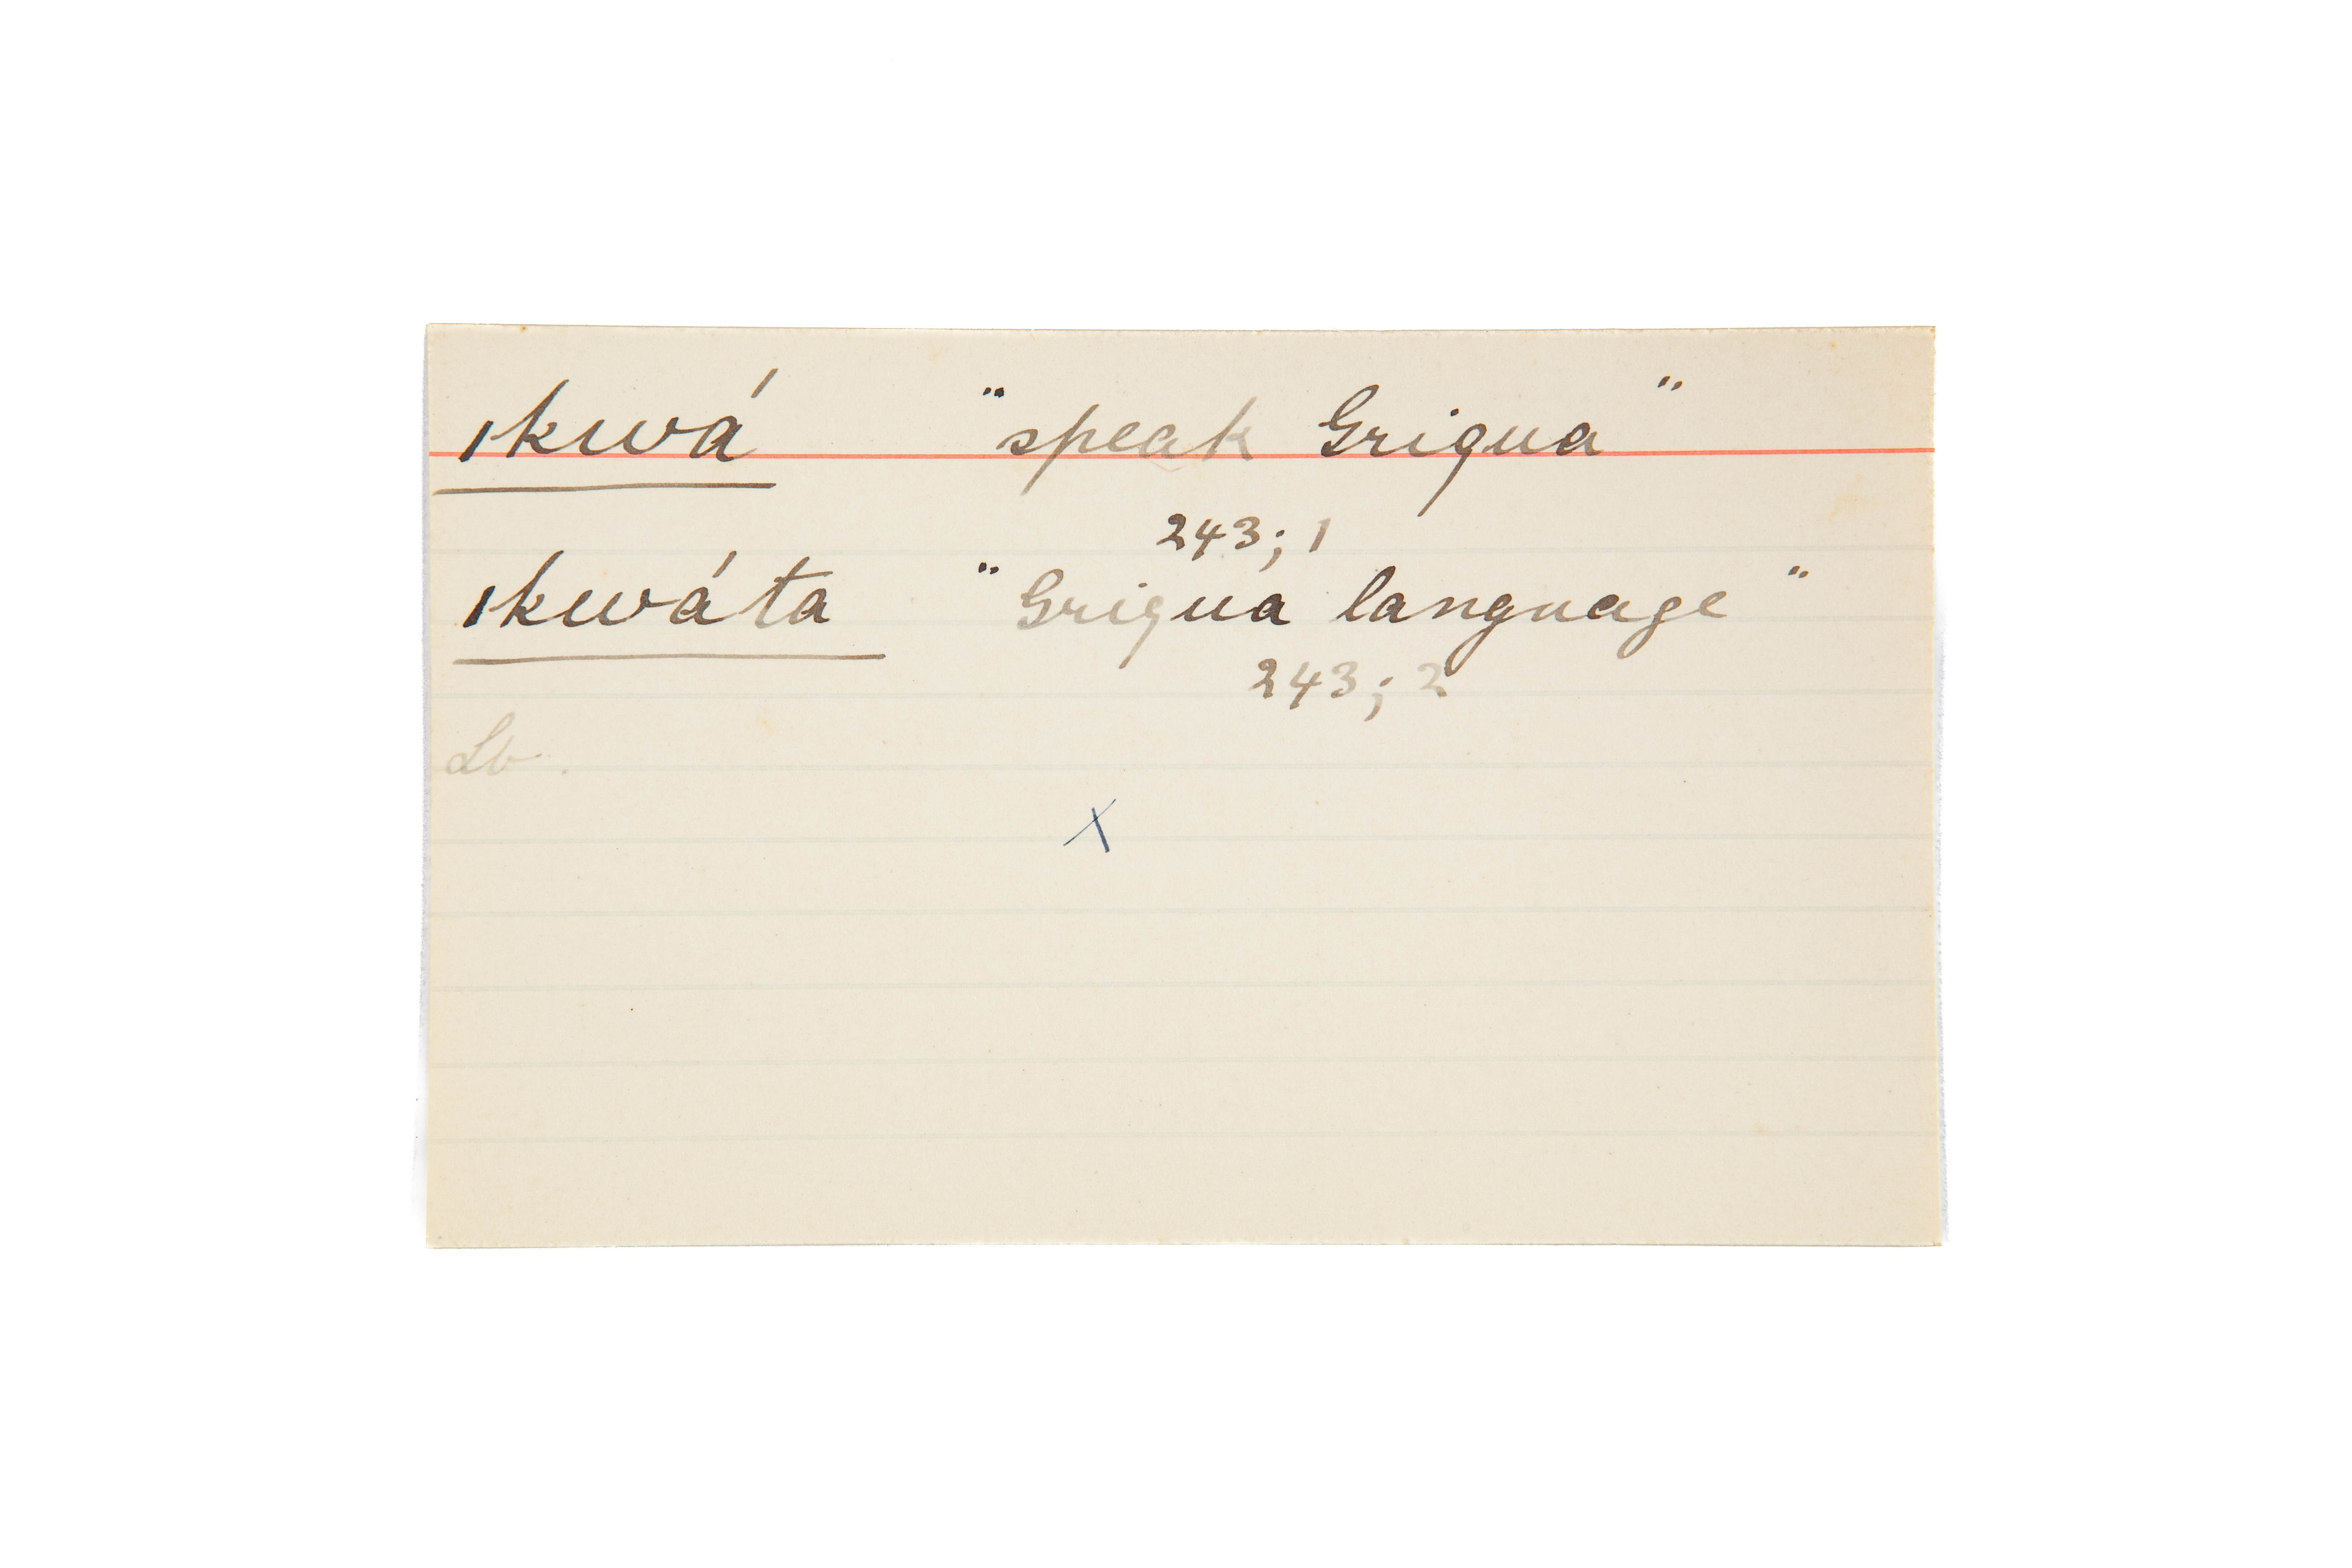 ıkwá "speak Griqua"
243; 1
ıkwáta "Griqua language"
243; 2
Lb.
x